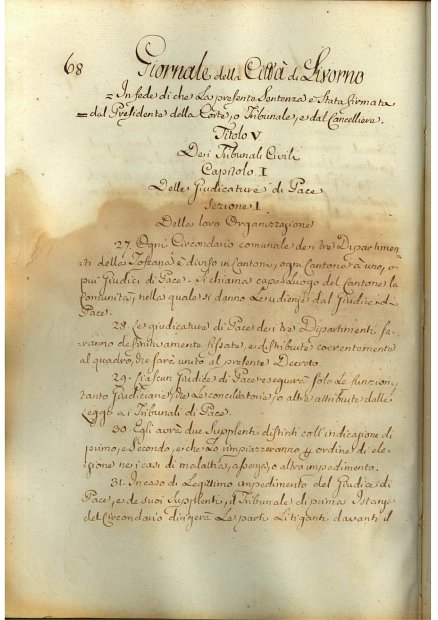 68
Giornale della Città di Livorno
= In fede di che La presente Sentenza è Stata firmata
= dal Presidente della Corte, o Tribunale, e dal Cancelliere.
Titolo V
Dei Tribunali Civili
Capitolo I
Delle Giudicature di Pace
Sezione I
Della loro Organizzazione
27. Ogni Circondario comunale dei tre Dipartimen-
ti della Toscana è diviso in Cantoni, ogni Cantone à uno, o
più Giudici di Pace. Si chiama capo-luogo del Cantone la
Comunità, nella quale si danno Le udienze dal Giudice di
Pace.
28. Le giudicature di Pace dei tre Dipartimenti, sa-
ranno definitivamente fissate, e distribuite coerentemente
al quadro, che sarà unito al presente Decreto.
29. Ciascun Giudice di Pace eseguirà solo Le funzioni
tanto Giudiciarie, che Le conciliatorie, o altre attribuite dalle
Leggi a i Tribunali di Pace.
30. Egli avrà due Supplenti distinti coll'indicazione di
primo, e Secondo, e che Lo rimpiazzeranno ordine di ele-
zione nei casi di malattia, assenza, o altro impedimento.
31. In caso di Legittimo impedimento del Giudice di
Pace, e de suoi Supplenti, il Tribunale di prima Istanza
del Circondario dirigerà Le parti Litiganti davanti il